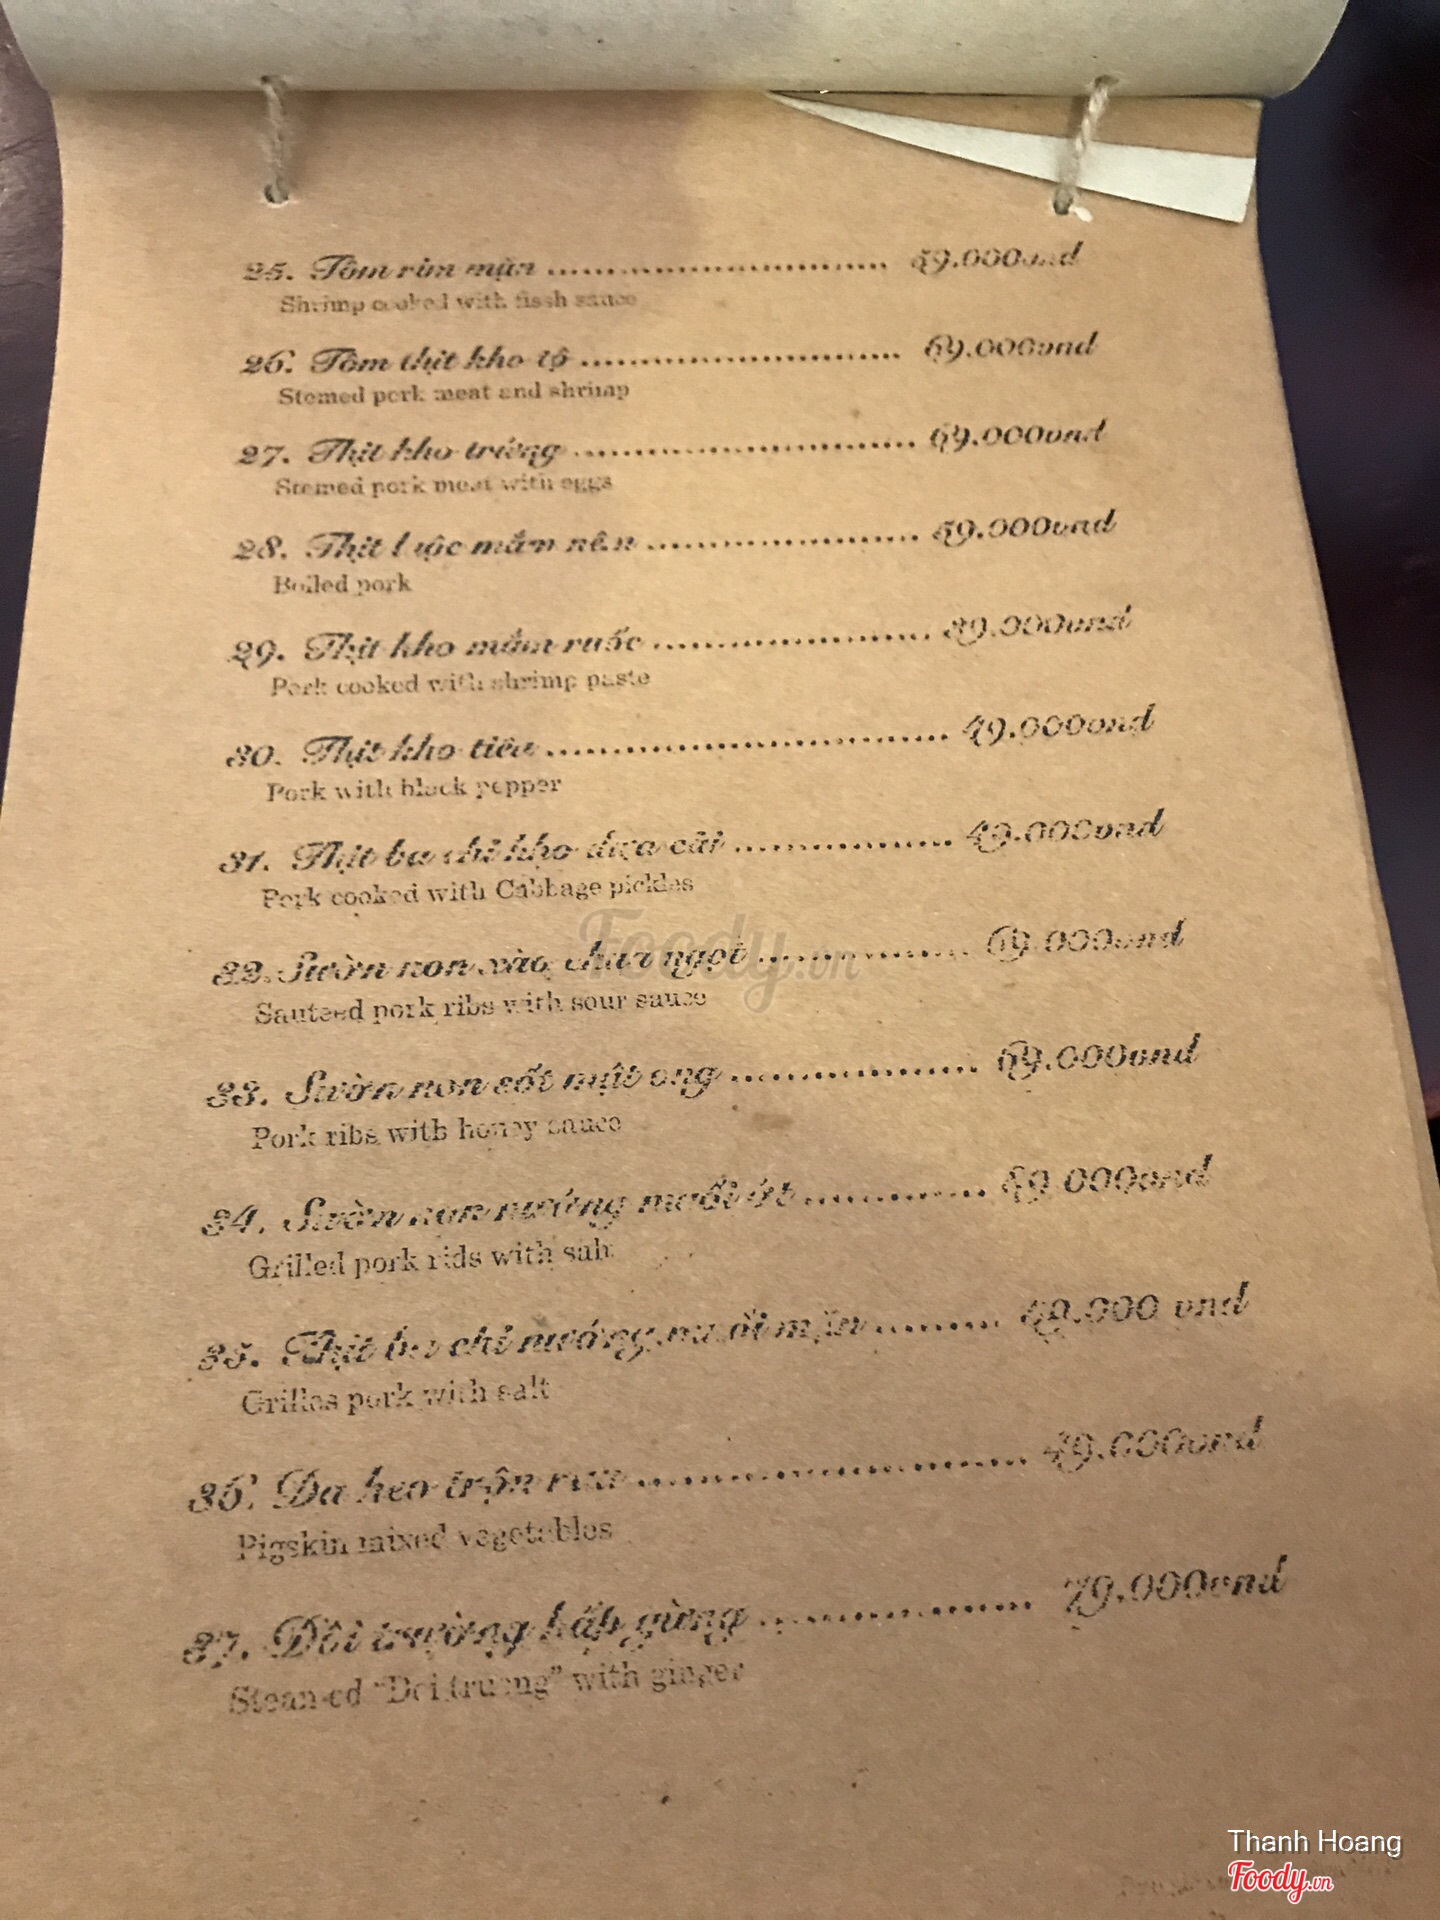 25. Tôm rim mặn .............................. 59.000vnd
Shrimp cooked with fissh sauce
26. Tôm thịt kho tộ ............................ 69.000vnd
Stemed pork meat and shrimp
27. Thịt kho trứng .............................. 69.000vnd
Stemed pork meat with eggs
28. Thịt luộc mắm nêm ....................... 59.000vnd
Boiled pork
29. Thịt kho mắm ruốc ........................ 39.000vnd
Pork cooked with shrimp paste
30. Thịt kho tiêu ................................... 49.000vnd
Pork with black pepper
31. Thịt ba chỉ kho dưa cải .................. 49.000vnd
Pork cooked with Cabbage pickles
32. Sườn non xào chua ngọt .................. 69.000vnd
Sauteed pork ribs with sour sauce
33. Sườn non sốt mật ong .................... 69.000vnd
Pork ribs with honey sauce
34. Sườn non nướng muối ớt ............... 59.000vnd
Grilled pork rids with salt
35. Thịt ba chỉ nướng muối mặn ......... vnd
Grilles pork with salt
36. Da heo trộn rau .............................. 49.000vnd
Pigskin mixed vegetables
37. Dồi trường hấp gừng ..................... 79.000vnd
Steamed "Doi truong" with ginger
Foody.vn
Thanh Hoang
Foody.vn